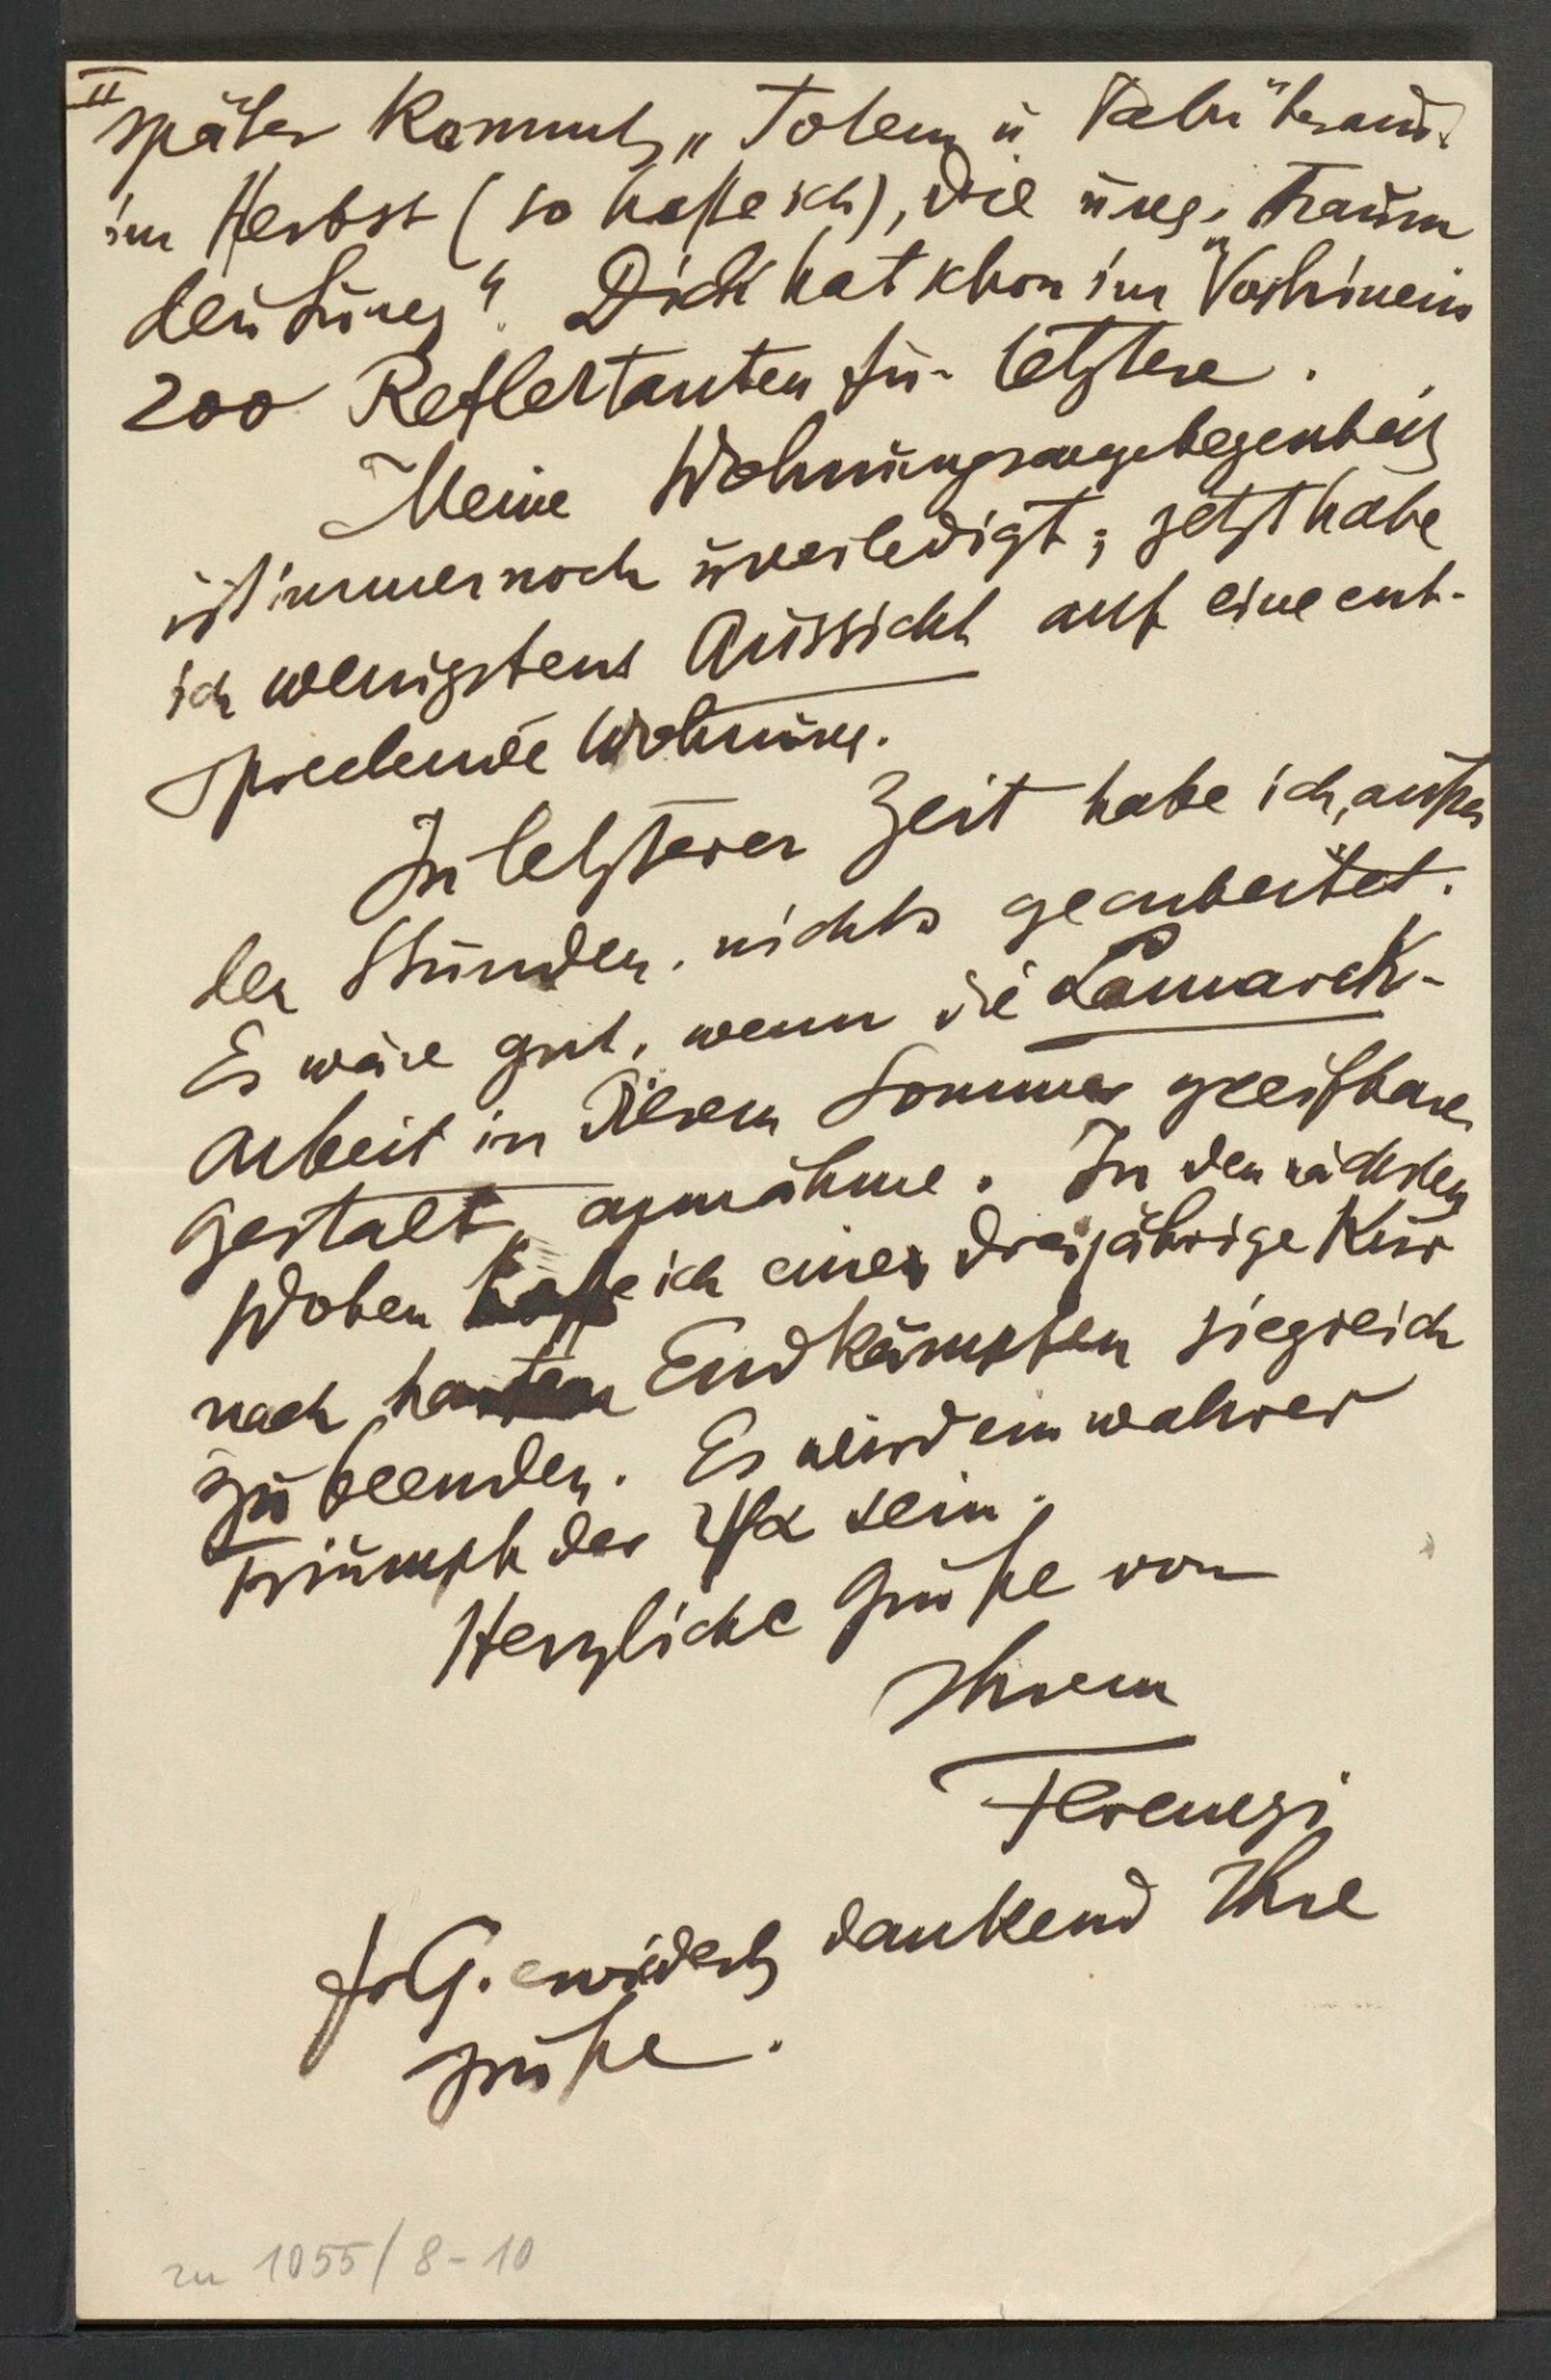 II
später kommt „Totem u Tabu“ heraus.
im Herbst (so hoffe ich), die ung. „Traum
deutung“. Dick hat schon im Vorhinein
200 Reflektanten für letztere.
Meine Wohnungsangelegenheit
ist immer noch unerledigt; jetzt habe
ich wenigstens Aussicht auf eine ent-
sprechende Wohnung.
In letzterer Zeit habe ich, außer
den Stunden, nichts gearbeitet.
Es wäre gut, wenn die Lamarck-
Arbeit in diesem Sommer greifbare
Gestalt annähme. In den nächsten
Wochen hoffe ich eine dreijährige Kur
nach harten Endkämpfen siegreich
zu beenden. Es wird ein wahrer
Triumph der ΨΑ sein.
Herzliche Grüße von
Ihrem
Ferenczi
Fr G. erwidert dankend Ihre
Grüße.
zu 1055/8-10